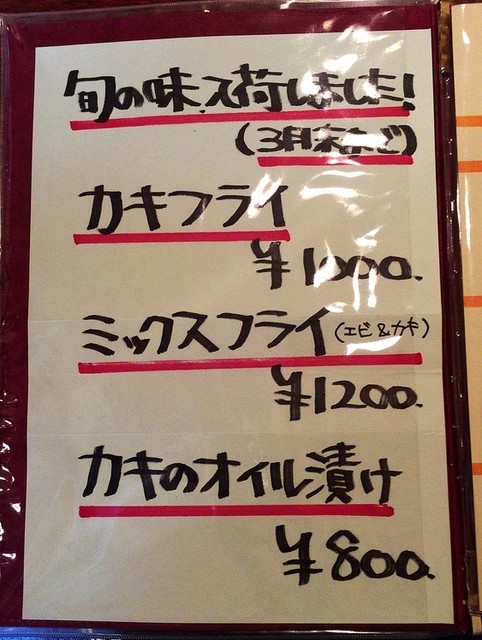 旬の味入荷しました!
(3月末まで)
カキフライ
¥1000.
ミックスフライ(エビ&カキ)
¥1200.
カキのオイル漬け
¥800.